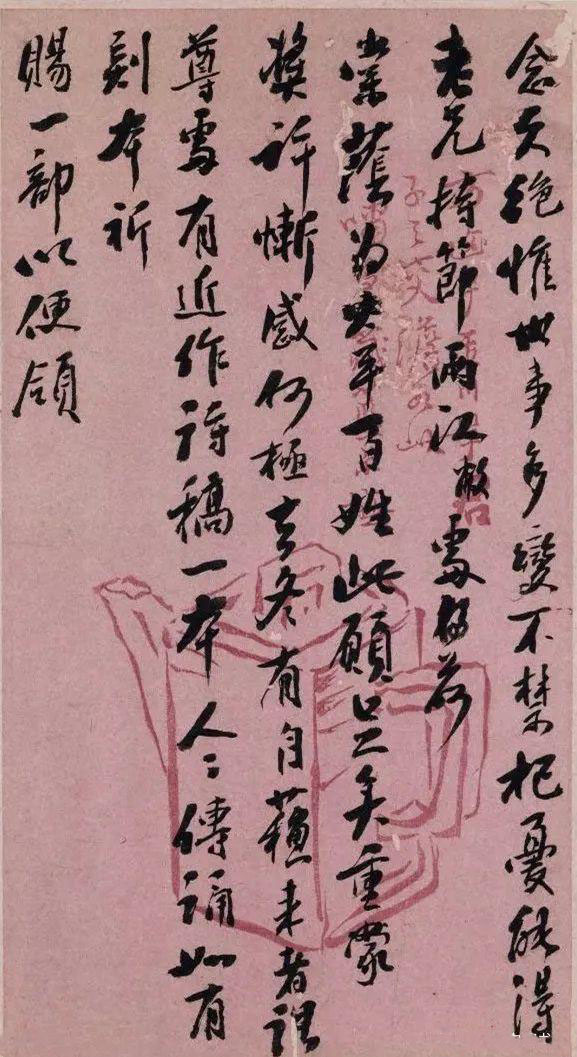 念天絶惟世事多變不禁杞憂能得
老兄持節兩江敝處得荷
棠蔭為太平百姓此願足矣重蒙
獎許慚感何極去冬有自蘇來者謂
尊處有近作詩稿一本人〻傳誦如有
刻本祈
賜一部以便領